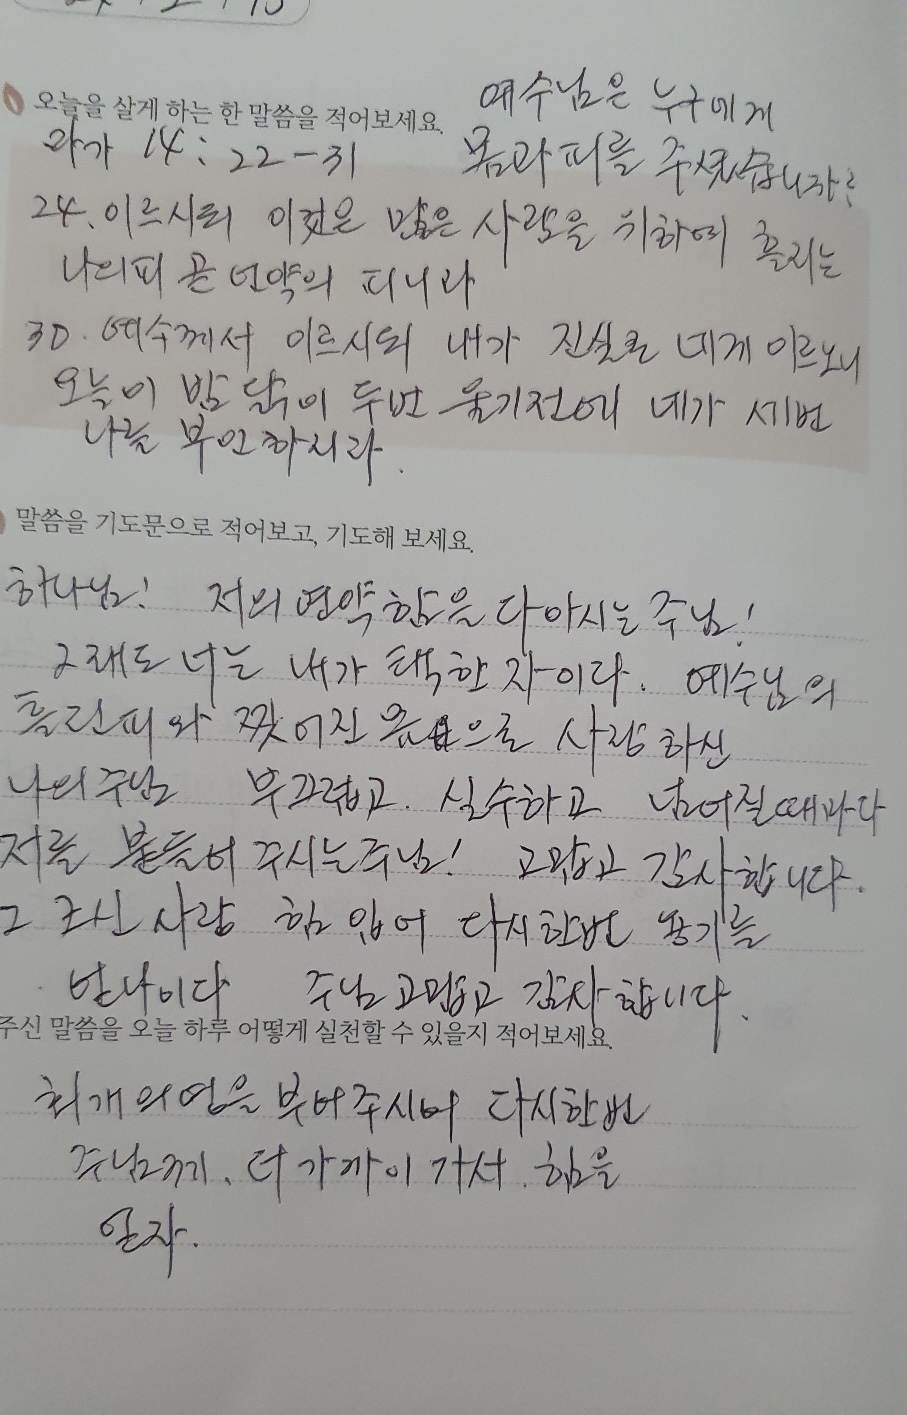 오늘을 살게 하는 한 말씀을 적어보세요.
예수님은 누구에게
몸과 피를 주셨습니까?
마가 14:22-31
24. 이르시되 이것은 많은 사람을 위하여 흘리는
나의피 곧 언약의 피니라
30. 예수께서 이르시되 내가 진실로 네게 이르노니
오늘이 밤 닭이 두번 울기전에 네가 세번
나를 부인하시라.
말씀을 기도문으로 적어보고, 기도해 보세요.
하나님! 저의 연약함을 다 아시는 주님!
그래도 너는 내가 택한 자이다. 예수님의
흘린피와 찢어진 으로 사랑하신
나의주님 부끄럽고. 실수하고 넘어질때마다
저를 붙들어 주시는주님! 고맙고 감사합니다.
그 크신 사랑 힘 입어 다시한번 용기를
얻나이다 주님 고맙고 감사합니다.
주신 말씀을 오늘 하루 어떻게 실천할 수 있을지 적어보세요.
회개의영을 부어주시어 다시한번
주님께. 더 가까이 가서. 힘을
얻자.